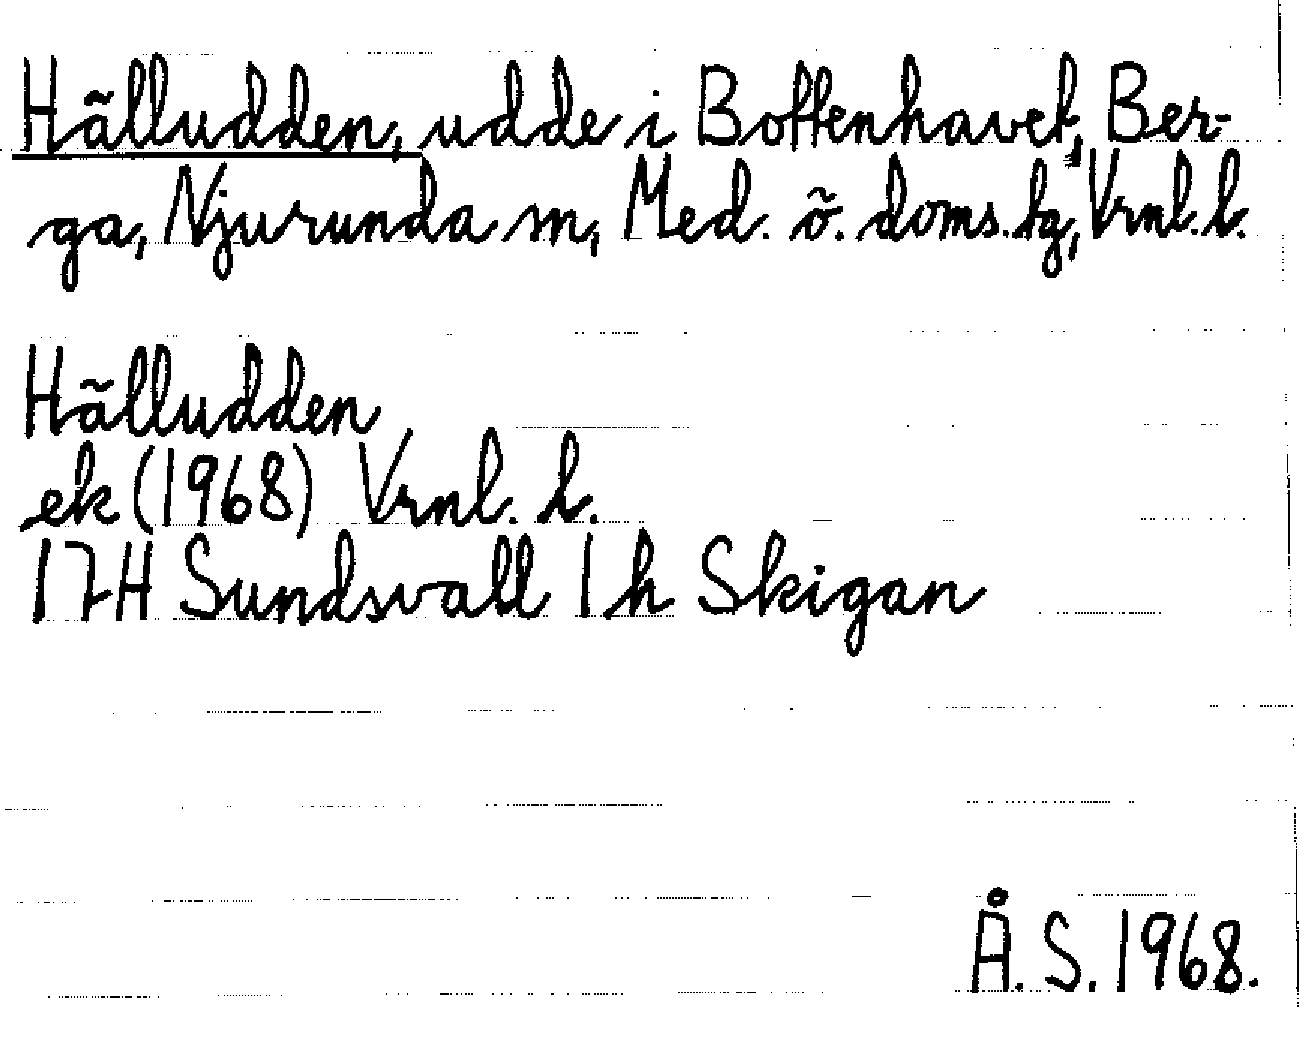 Hälludden, udde i Bottenhavet, Ber-
ga, Njurunda sn, Med. ö. doms. tg, Vrnl. l.
Hälludden
ek (1968) Vrnl. l.
17H Sundsvall 1h Skigan
Å. S. 1968.